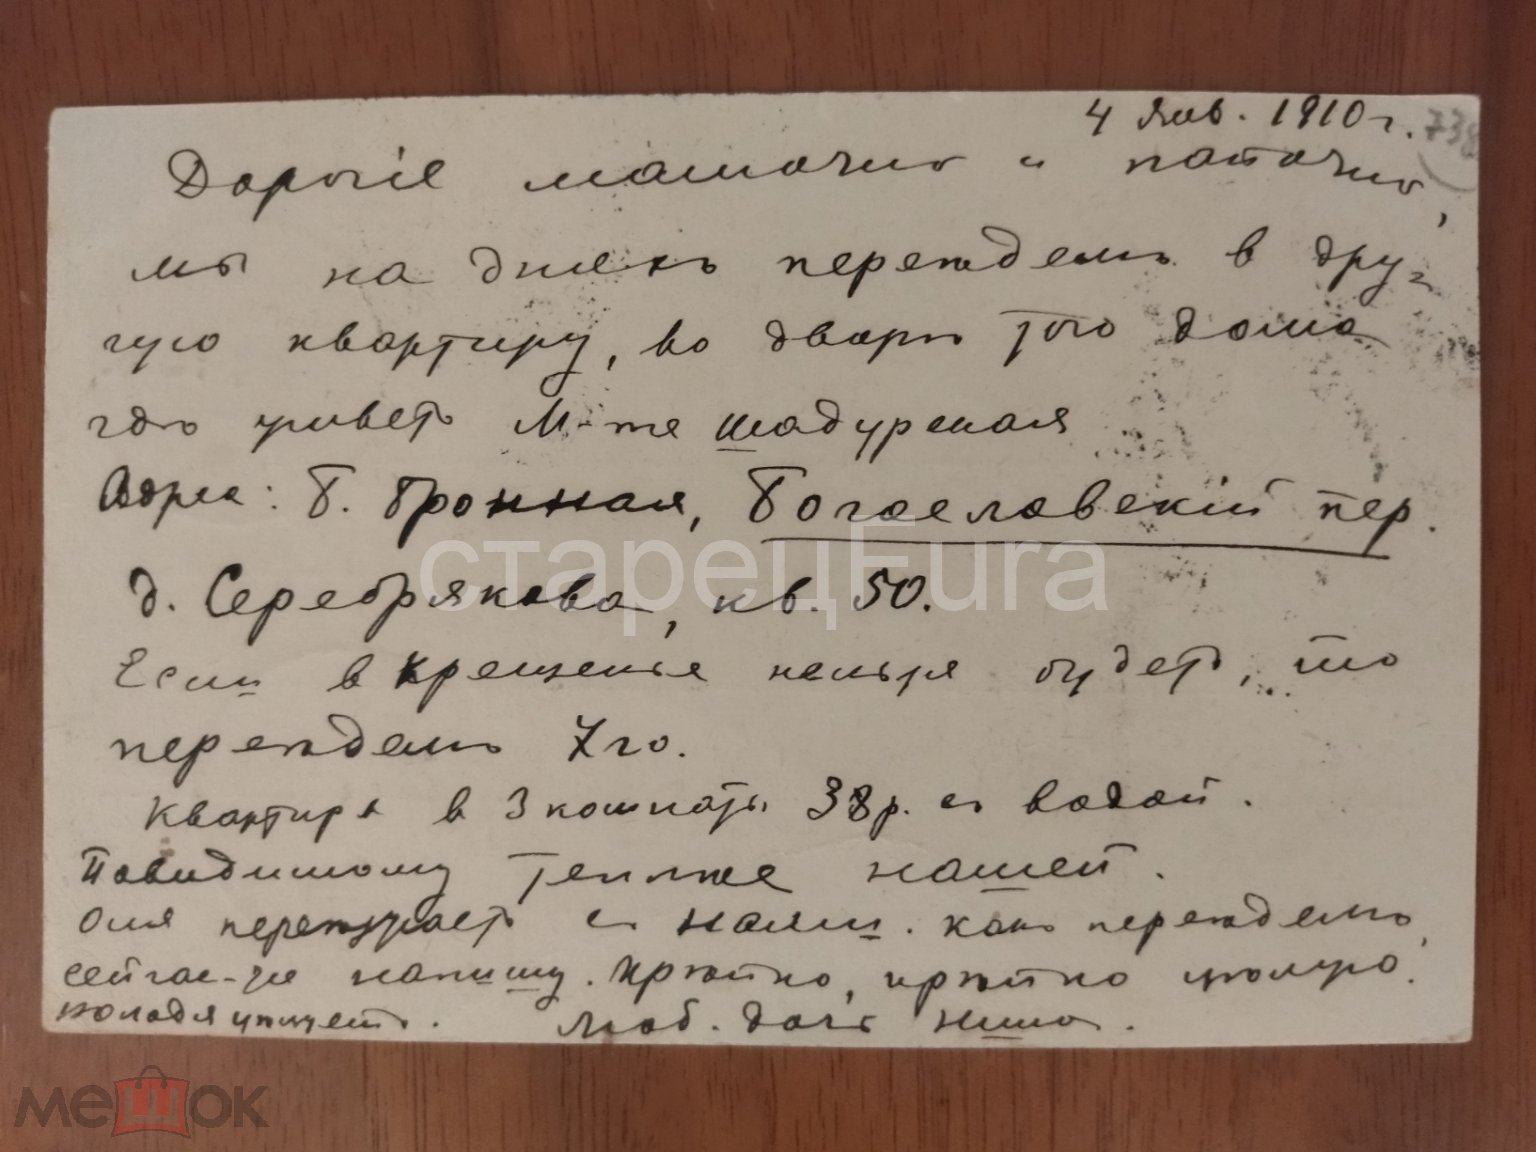 4 Янв. 1910 г. 738
Дорогіе мамочка и папочка,
мы на дняхъ переѣдемъ в дру-
гую квартиру, во дворѣ того дома
гдѣ живетъ М-me Шадурская
Адрес: Б. Бронная, Богословскій пер.
д. Серебрякова, кв. 50.
Если в Крещенье нельзя будетъ, то
переѣдемъ 7го.
Квартира в 3 комнаты 38 р. съ водой.
Повидимому теплже нашей.
Оля переѣзжаетъ съ нами. какъ переѣдемъ,
сейчас-же напишу. Крѣпко, крѣпко цѣлую.
Володя цѣлуетъ. Люб. дочь Нина.
старецEura
мешок